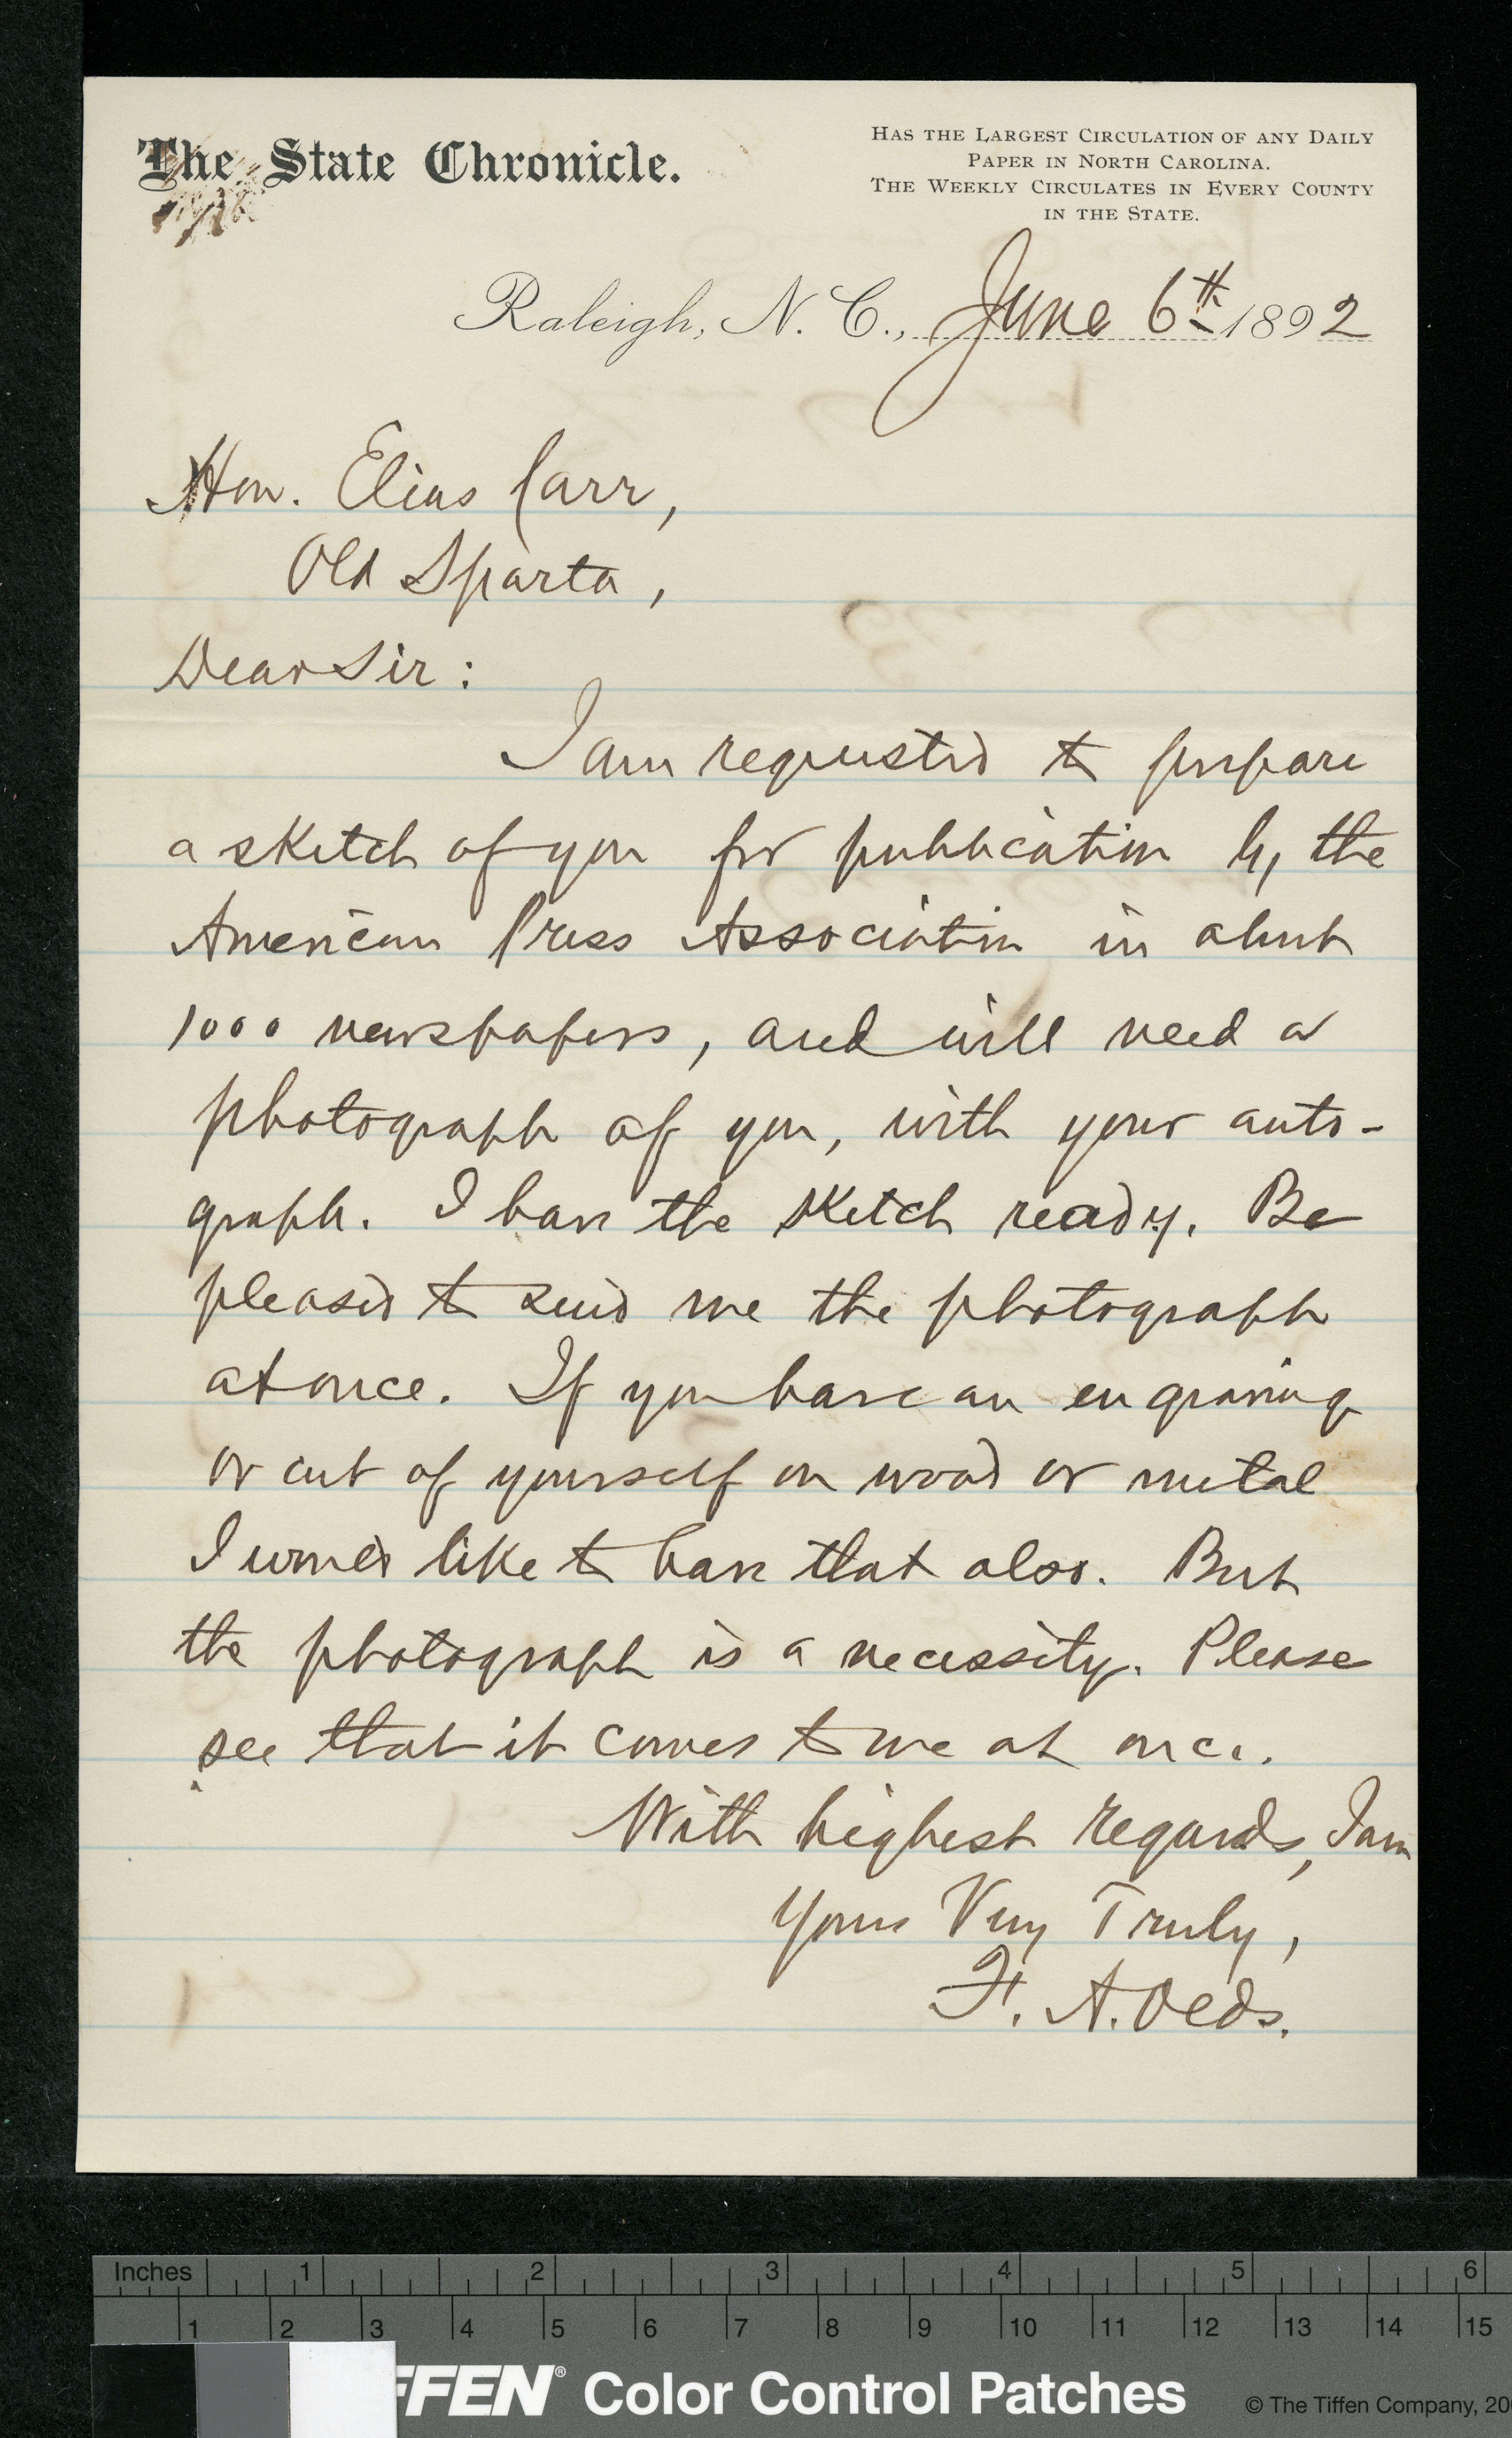 The State Chronicle.
HAS THE LARGEST CIRCULATION OF ANY DAILY
PAPER IN NORTH CAROLINA.
THE WEEKLY CIRCULATES IN EVERY COUNTY
IN THE STATE.
Raleigh, N. C., June 6th 1892
Hon. Elias Carr,
Old Sparta,
Dear Sir:
I am requested to prepare
a sketch of you for publication by the
American Press Association in about
1000 newspapers, and will need a
photograph of you, with your auto-
graph. I have the sketch ready. Be
pleased to send me the photograph
at once. If you have an engraving
or cut of yourself on wood or metal
I would like to have that also. But
the photograph is a necessity. Please
see that it comes to me at once.
With highest regards, I am
Yours Very Truly,
F. A. Olds.
Inches 1 2 3 4 5 6
1 2 3 4 5 6 7 8 9 10 11 12 13 14 15
FFEN® Color Control Patches © The Tiffen Company, 20